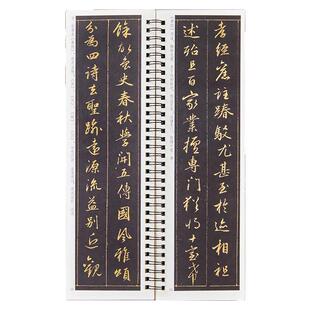 餘故魯史春秋學開五傳國風雅頌
分為四詩去聖踰遠源流益別近觀
孝經舊註踳駁尤甚至於迹相祖
述殆且百家業擅專門猶將十室希